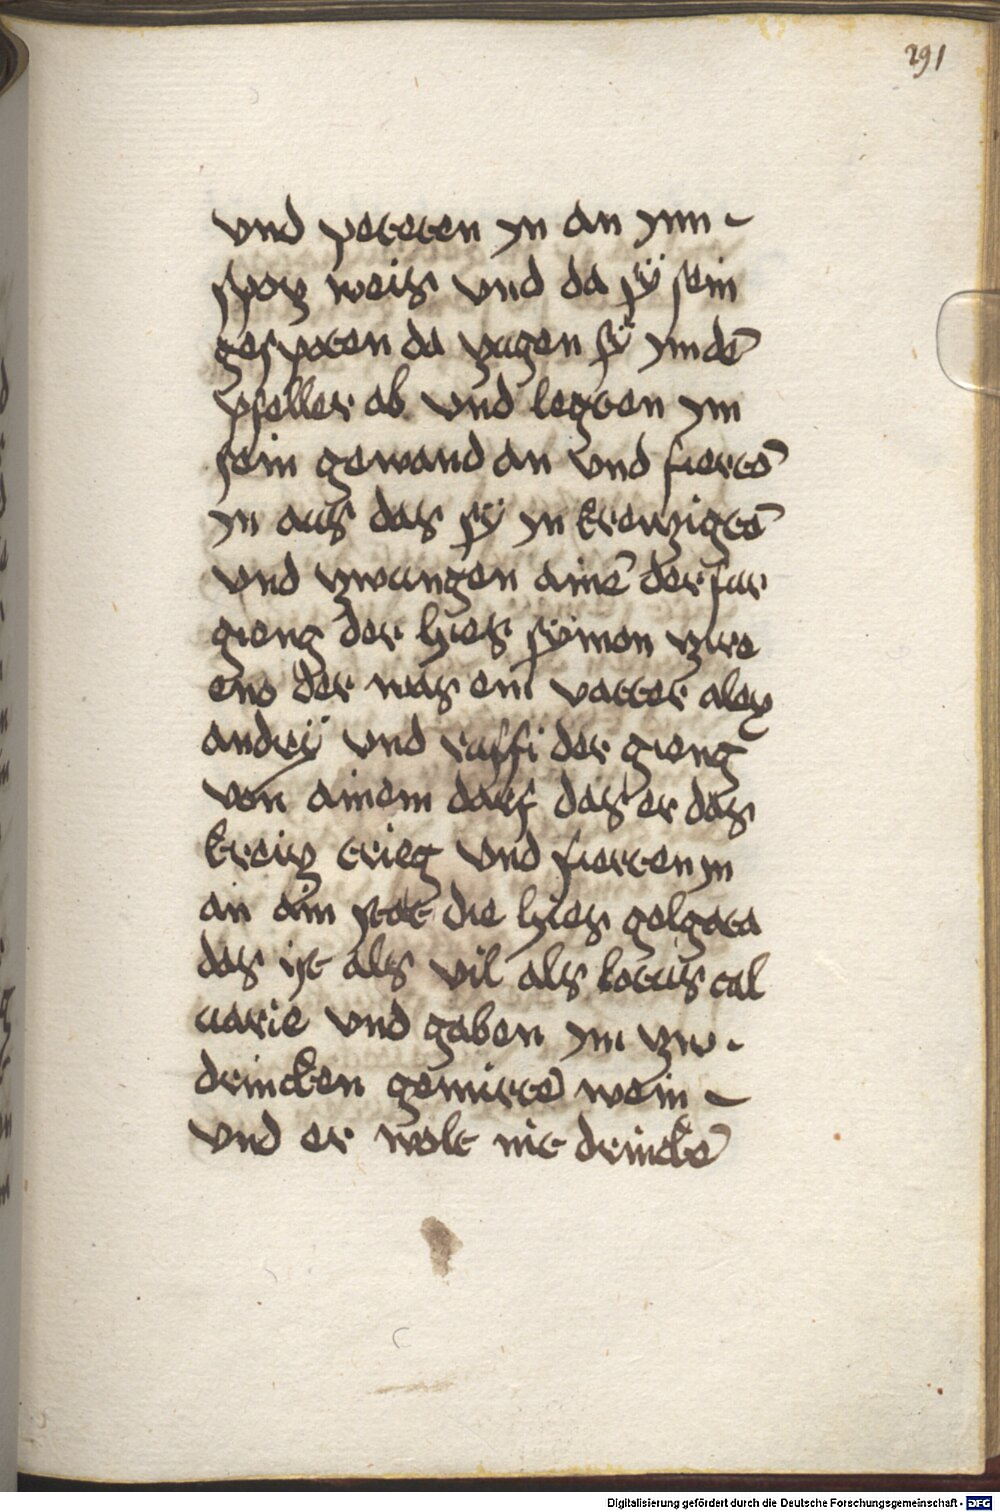 291
vnd peteten yn an ynn -
spoy weis vnd da sÿ sein
gespoten da zugen sÿ ym dē
pfeller ab vnd legten ym
sein gewand an vnd fiertē
yn aus das sÿ yn krewzigtē
vnd zwungen ainē der fur
gieng der hies sÿmon zire
eno der was ein vatter alex
andrÿ vnd ruffi der gieng
von ainem darf das er das
kreiz trieg vnd fierten yn
an ain stat die hies golgata
das ist als vil als locus cal
uarie vnd gaben ym zw -
drincken gemirtē wein -
vnd er wolt nit drinckē
Digitalisierung gefördert durch die Deutsche Forschungsgemeinschaft - DFG